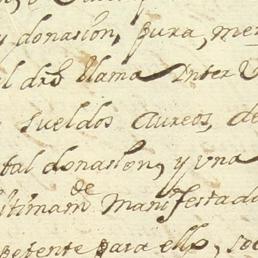 y donasión, pura, mer
l dro llama Inter V
sueldos aureos, de
tal donasión, y una
itimam de Manifestado
petente para ello, so